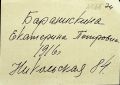 Баранискина
Екатерина Петровна
1916г
Никольская 84.